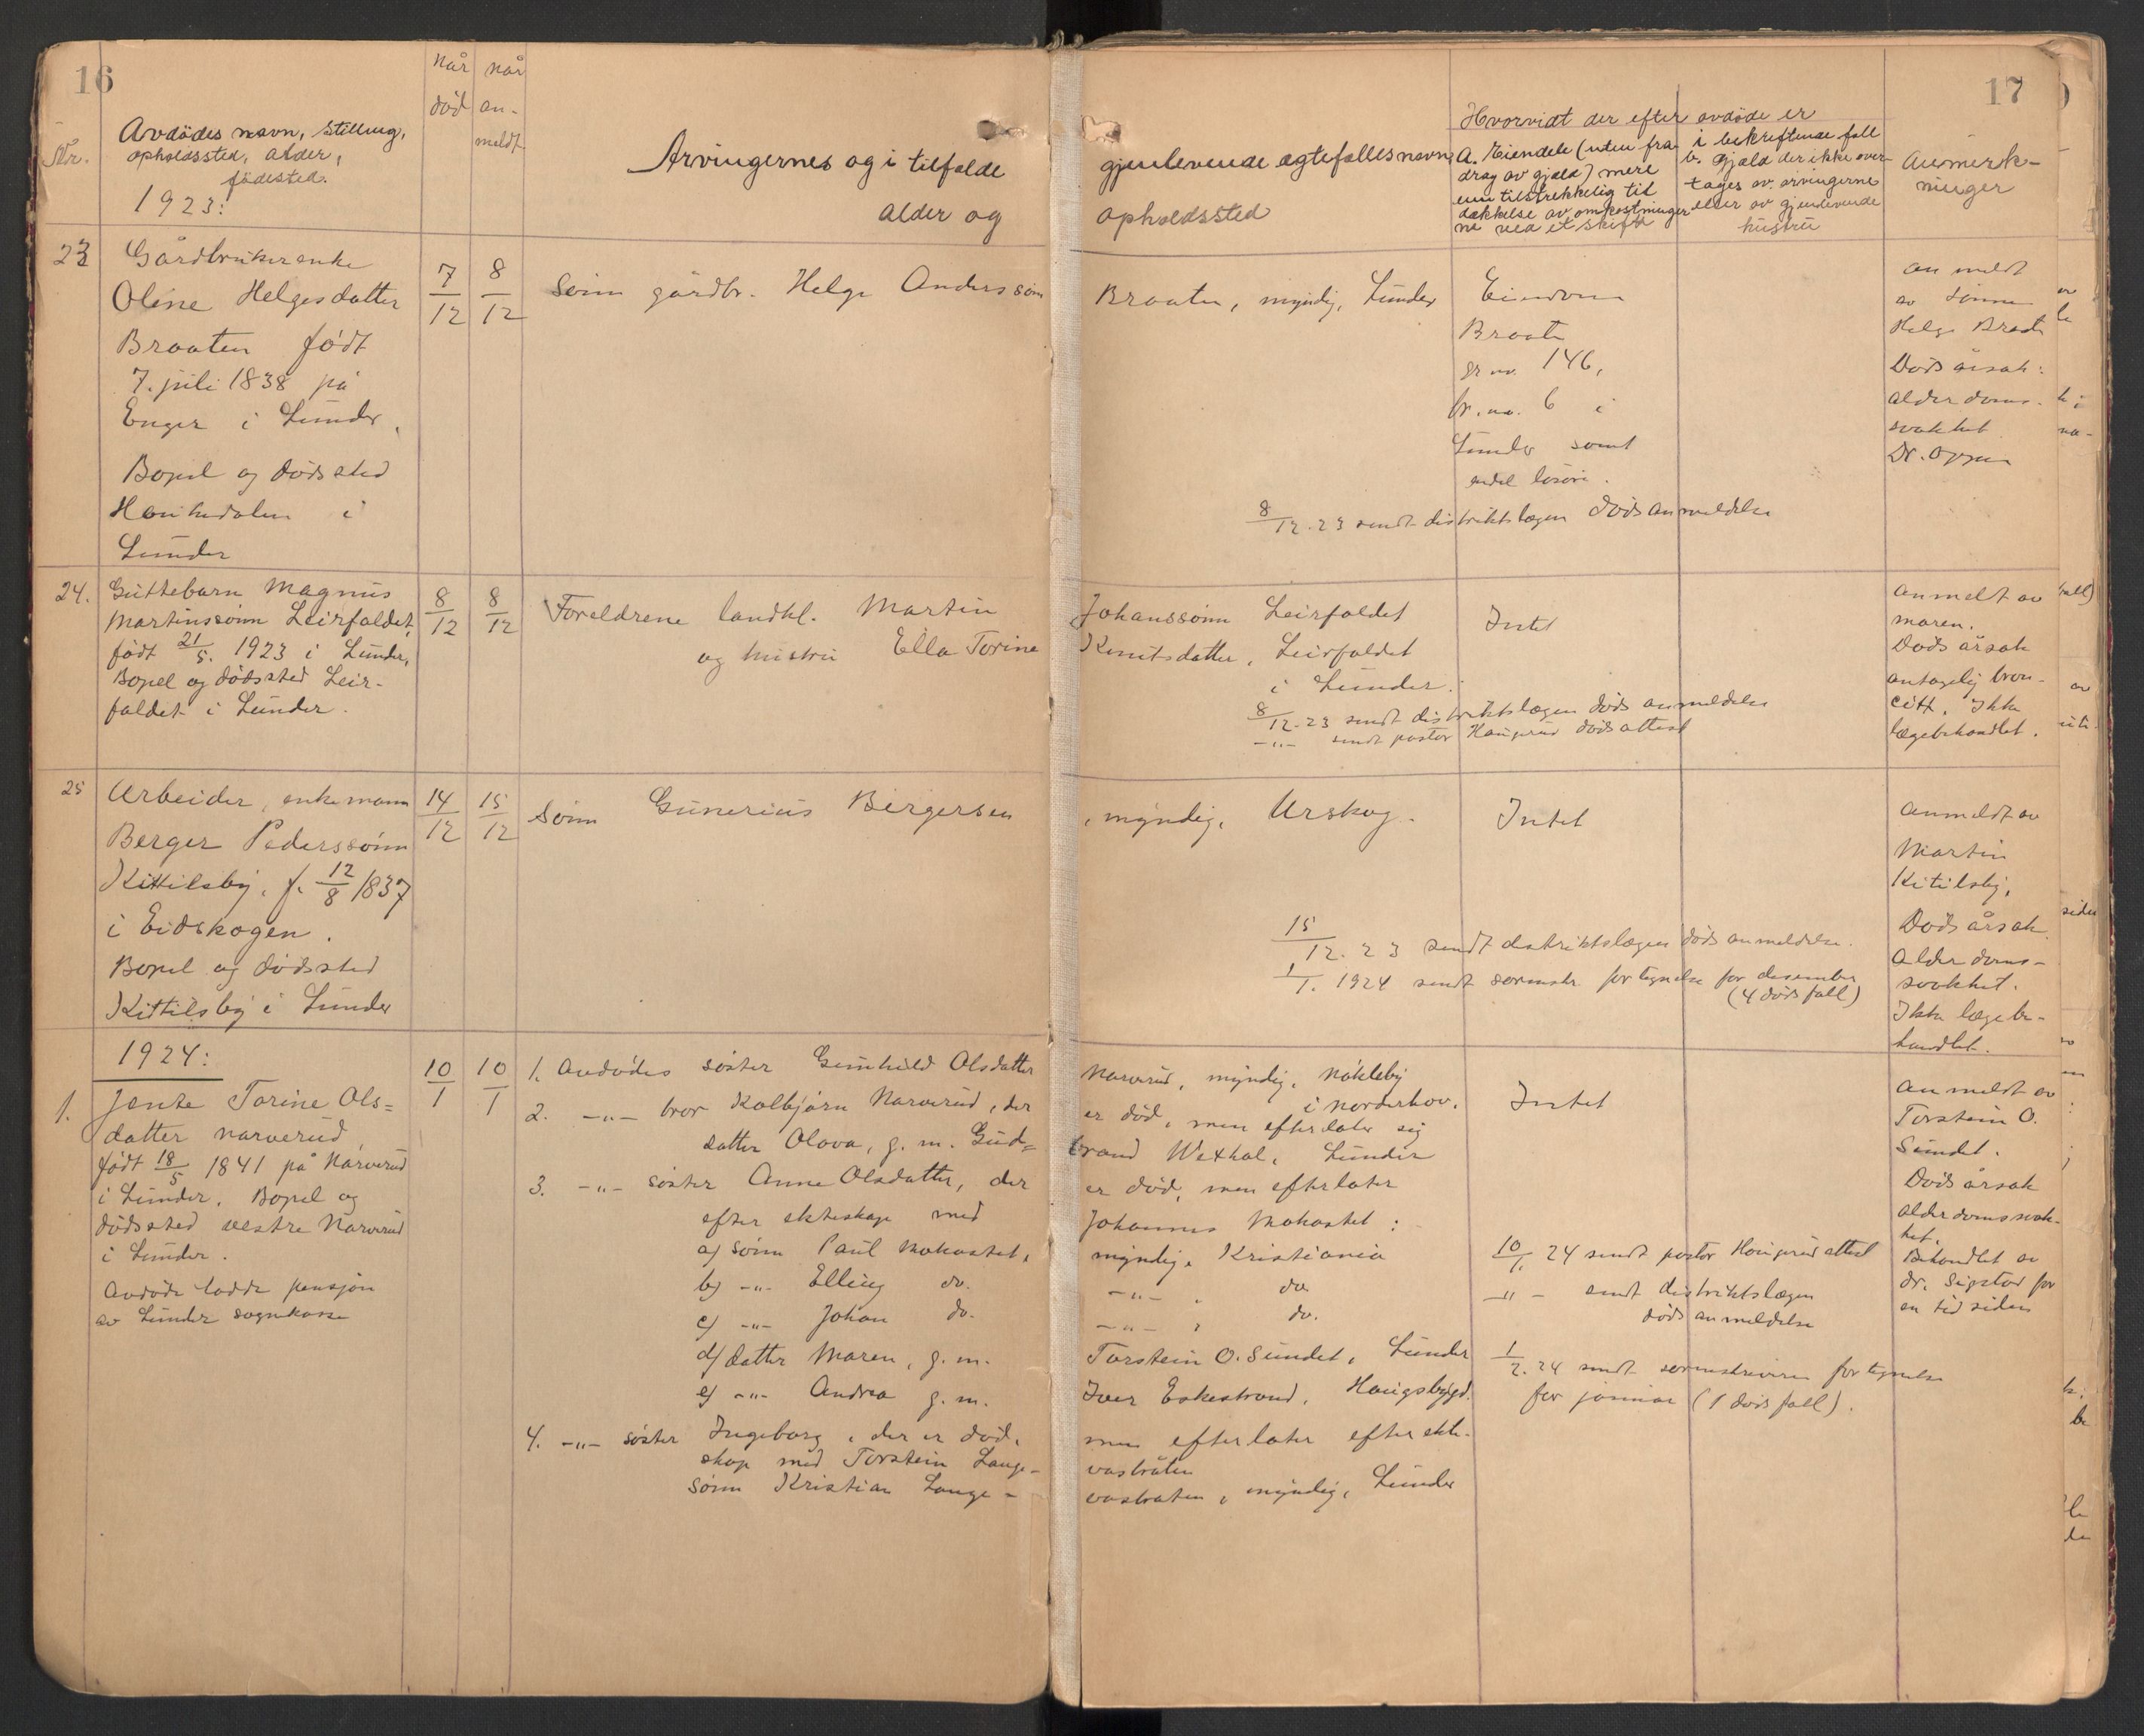 16
17
Nr.
Avdödes navn, stilling,
opholdssted, alder,
födested.
1923:
når död
når an-
meldt
Arvingernes og i tilfælde
alder og
gjenlevende egtefælles navn
opholdssted
Hvorvidt der efter avdöde er
A. Eiendele (uten fra-
drag av gjæld) mere
enn tilstrekkelig til
dækkelse av omkostninger
ne ved et skifte
i bekreftende fall
b. Gjæld der ikke over-
tages av arvingerne
eller av gjenlevende
hustru
Anmerk-
ninger
23
Gårdbrukerenke
Oline Helgesdatter
Braaten født
7. juli 1838 på
Enger i Lunder,
Bopel og dødssted
i
Lunder
7/12
8/12
Sønn gårdbr. Helge Anderssøn
Braaten, myndig, Lunder
Eiendom
Braate
gr. nr. 146,
br. nr. 6 i
Lunder samt
endel løsøre.
8/12.23 sendt distriktslægen dødsanmeldelse
Anmeldt
av sønnen
Helge Braate
Dødsårsak:
alderdoms-
svakhet
Dr. Oppen
24.
Guttebarn Magnus
Martinssønn Leirfaldet,
født 21/5. 1923 i Lunder,
Bopel og dødssted Leir-
faldet i Lunder.
8/12
8/12
Foreldrene landhl. Martin
Johanssønn Leirfaldet
og hustru Ella Torine
Knutsdatter, Leirfaldet
i Lunder.
Intet
8/12-23 sendt distriktslægen dødsanmeldelse
-"- sendt pastor Haugerud dødsattest
Anmeldt av
moren.
Dødsårsak
antagelig bron-
citt. Ikke
lægebehandlet.
25
Arbeider, enkemann
Berger Pederssønn
Kittilsby, f. 12/8 1837
i Eidskogen.
Bopel og dødssted
Kittilsby i Lunder
14/12
15/12
Sønn Gunerius Bergersen
, myndig, Urskog.
Intet
15/12. 23 sendt distriktslægen dødsanmeldelse.
1/1. 1924 sendt sorenskr. fortegnelse for desember
(4 dødsfall)
Anmeldt av
Martin
Kitilsby,
Dødsårsak
Alderdoms-
svakhet.
Ikke lægebe-
handlet.
1924:
1.
Jente Torine Ols=
datter Narverud,
født 18/5 1841 på Narverud
i Lunder. Bopel og
dødssted vestre Narverud
i Lunder.
Avdøde hadde pensjon
av Lunder sognekasse
10/1
10/1
1. Avdødes søster Gunhild Olsdatter
Narverud, myndig, Nøkleby
i Norderhov.
2. -"- bror Kolbjørn Narverud, der
er død, men efterlater sig
datter Olava, g. m. Gud=
brand Wexhal, Lunder
3. -"- søster Anne Olsdatter, der
er død, men efterlater
efter ekteskap med
Johannes Mohastet:
a) sønn Paul Mohastet,
myndig, Kristiania
b) -"- Elling do.
-"- , do.
c) -"- Johan do.
-"- , do.
d) datter Maren, g. m.
Torstein O. Sundet, Lunder
e) -"- Andrea g. m.
Iver Eskestrand, Haugsbygd.
4. -"- søster Ingeborg, der er død,
men efterlater efter ekte-
skap med Torstein Lange-
vasbråten
sønn Kristian Lange-
vasbraten, myndig, Lunder
Intet
10/1. 24 sendt pastor Haugerud attest
-"- sendt distriktslægen
dødsanmeldelse
1/2. 24 sendt sorenskriveren fortegnelse
for januar (1 dødsfall).
Anmeldt av
Torstein O.
Sundet.
Dødsårsak
alderdomssvak-
het.
Behandlet av
dr. Sigstad for
en tid siden